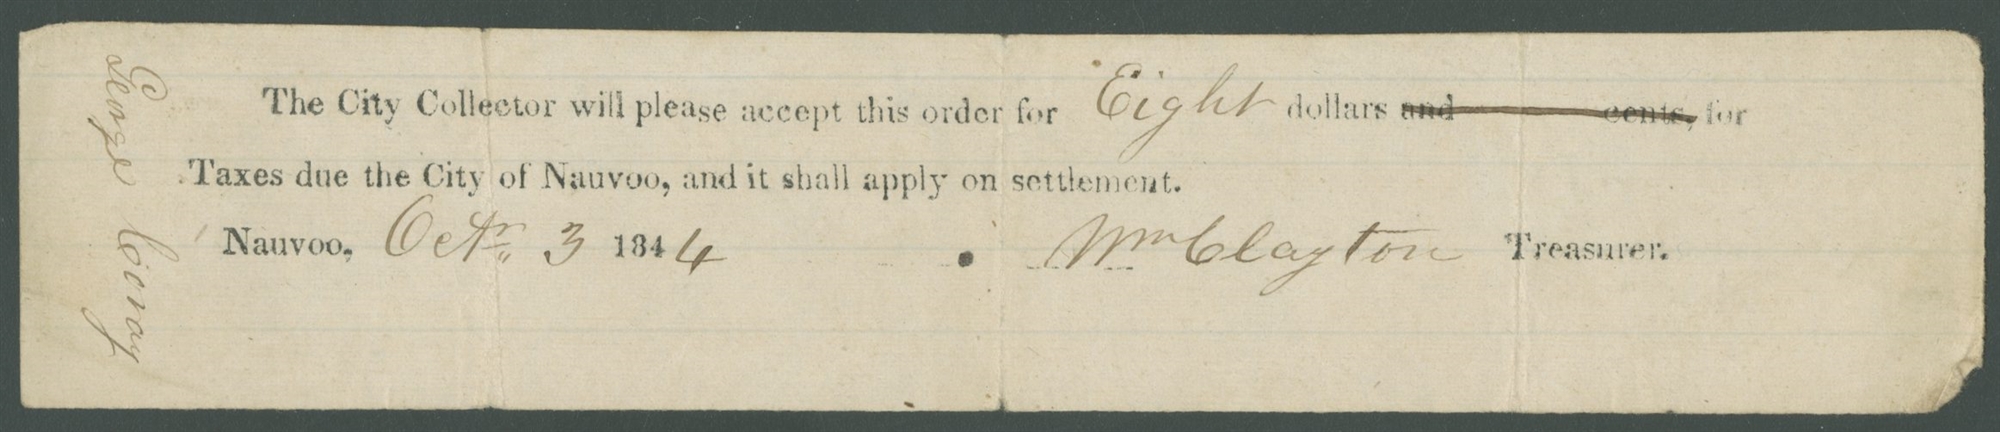 The City Collector will please accept this order for Eight dollars and cents, for
Taxes due the City of Nauvoo, and it shall apply on settlement.
Nauvoo, Octr. 3 1844 Wm Clayton Treasurer.
George Coray